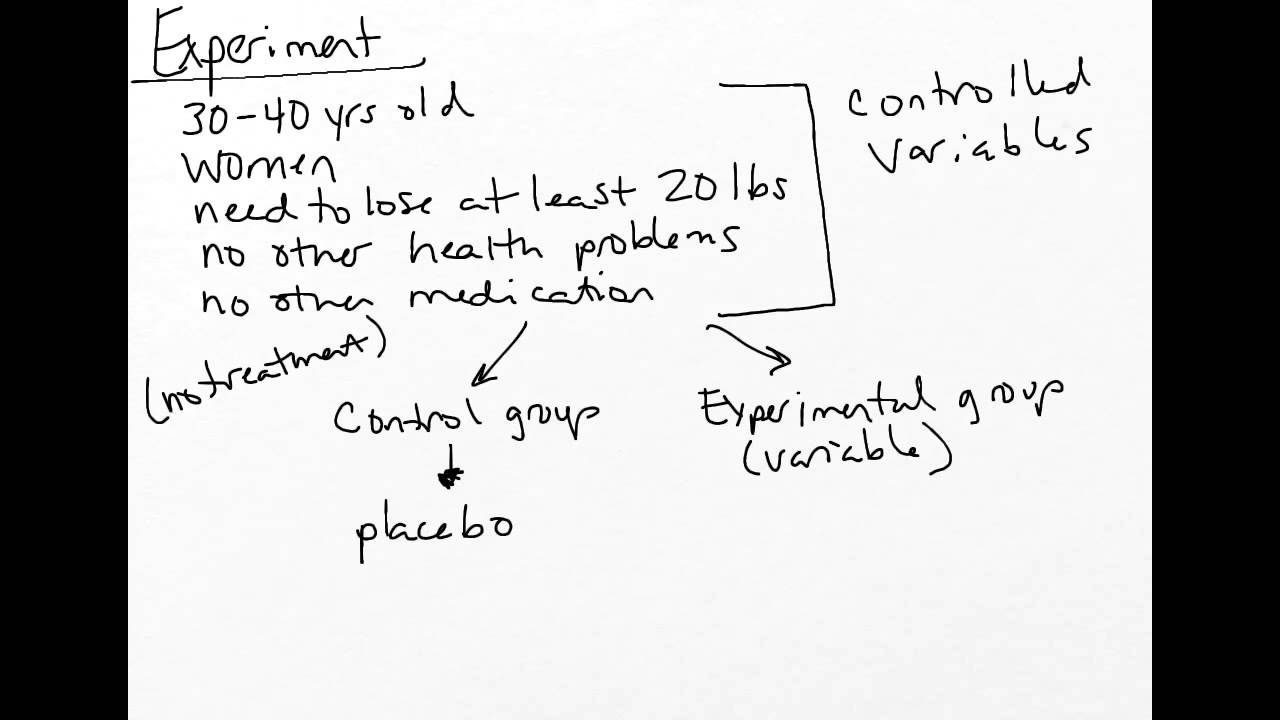 Experiment
30-40 yrs old
women
need to lose at least 20 lbs
no other health problems
no other medication
controlled
variables
(no treatment)
Control group
placebo
Experimental group
(variable)